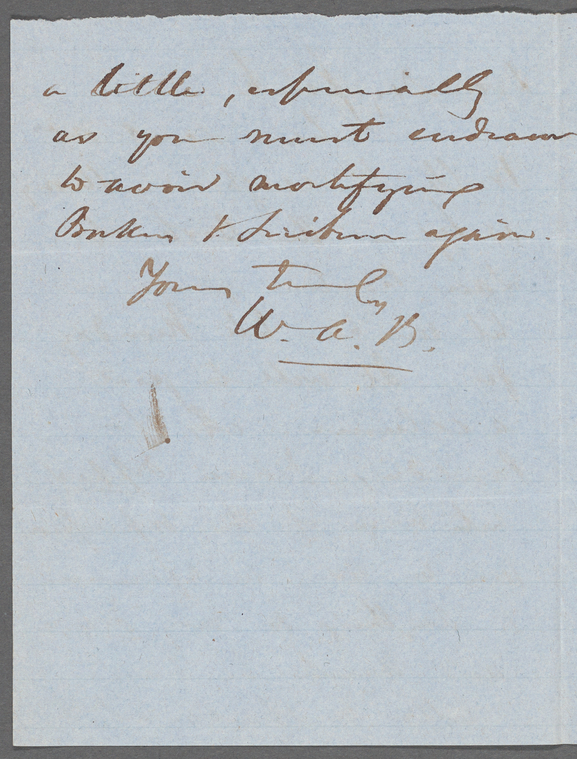 a little, especially
as you must endeavor
to avoid mortifying
Baker & Scribner again.
Yours truly
W. A. B.